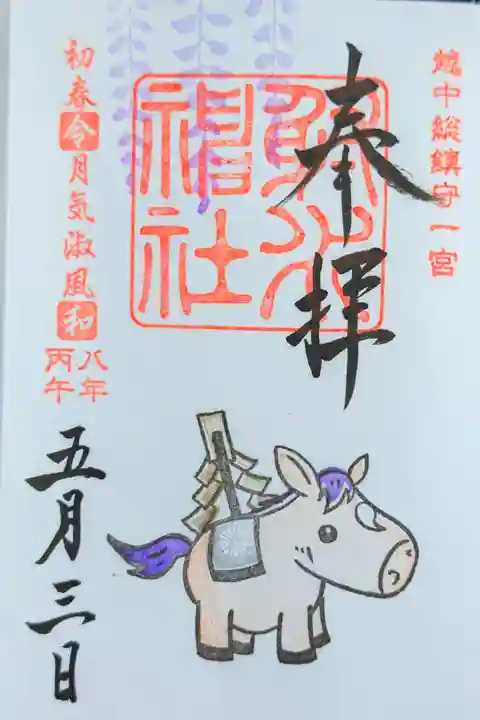 越中総鎮守一宮
奉拝
射水神社
初春令月気淑風和
八年
丙午
五月三日